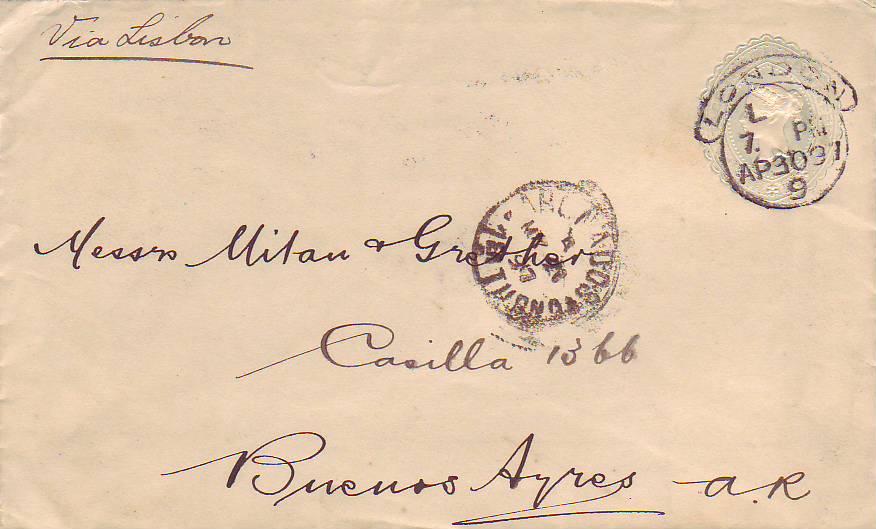 Via Lisbon
LONDON
L
7. PM
AP30 91
9
Messrs Milan & Grether
Casilla 1366
Buenos Ayres A.R